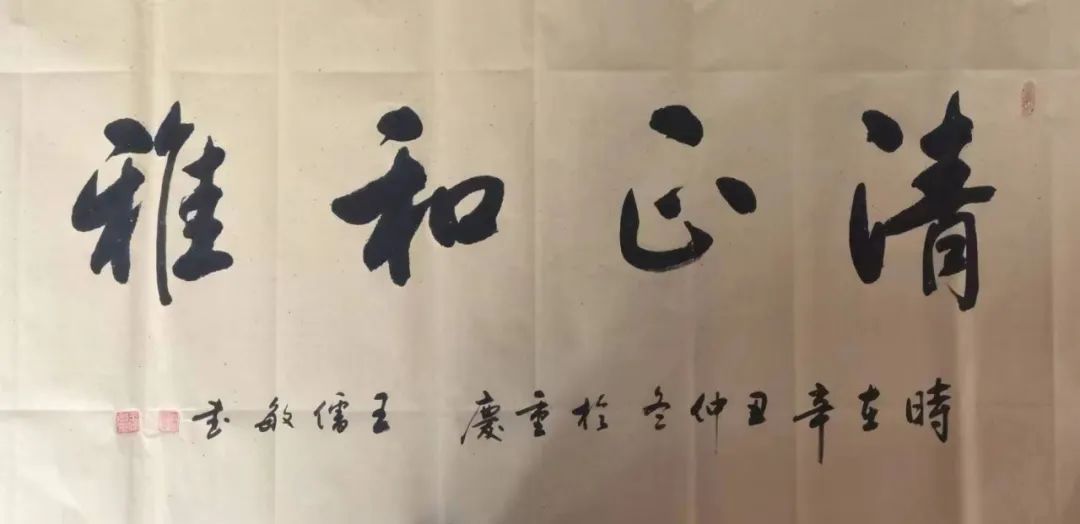 清正和雅
時在辛丑仲冬於重慶 王儒敏书